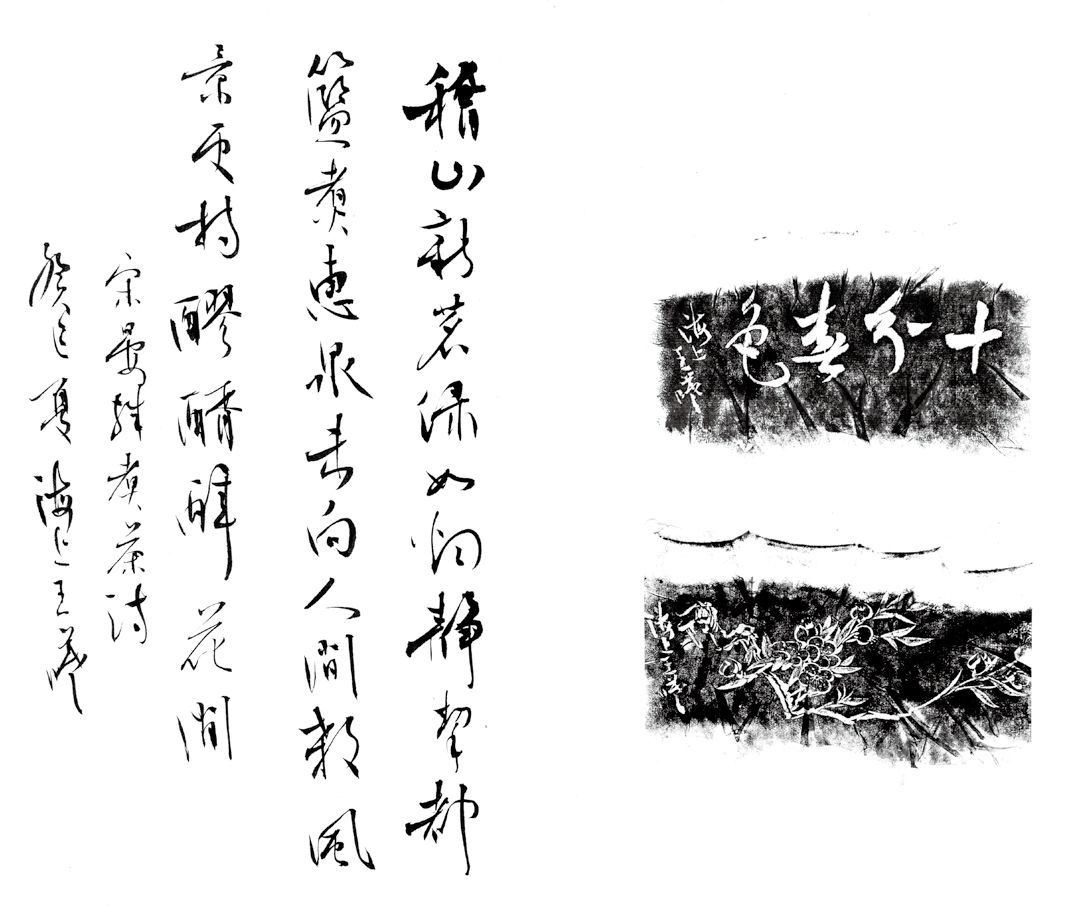 十分春色
海上王
海上王
稽山新茗綠如烟靜挈都
籃煮惠泉未向人間殺風
景更持醪醑醉花間
宋晏殊煮茶詩
癸巳夏海上王